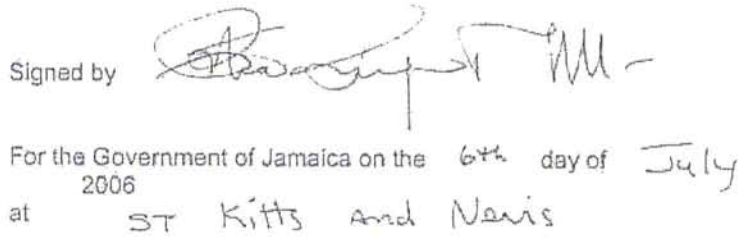 Signed by
For the Government of Jamaica on the 6th day of July
2006
at ST Kitts and Nevis